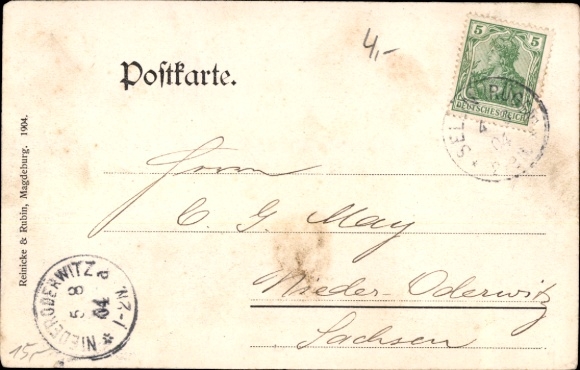 4,-
5 5
DEUTSCHES REICH
Postkarte.
Reinicke & Rubin, Magdeburg. 1904.
Herrn
C. G. May
Nieder-Oderwitz
Sachsen
NIEDERODERWITZ
5 8 04
15,-